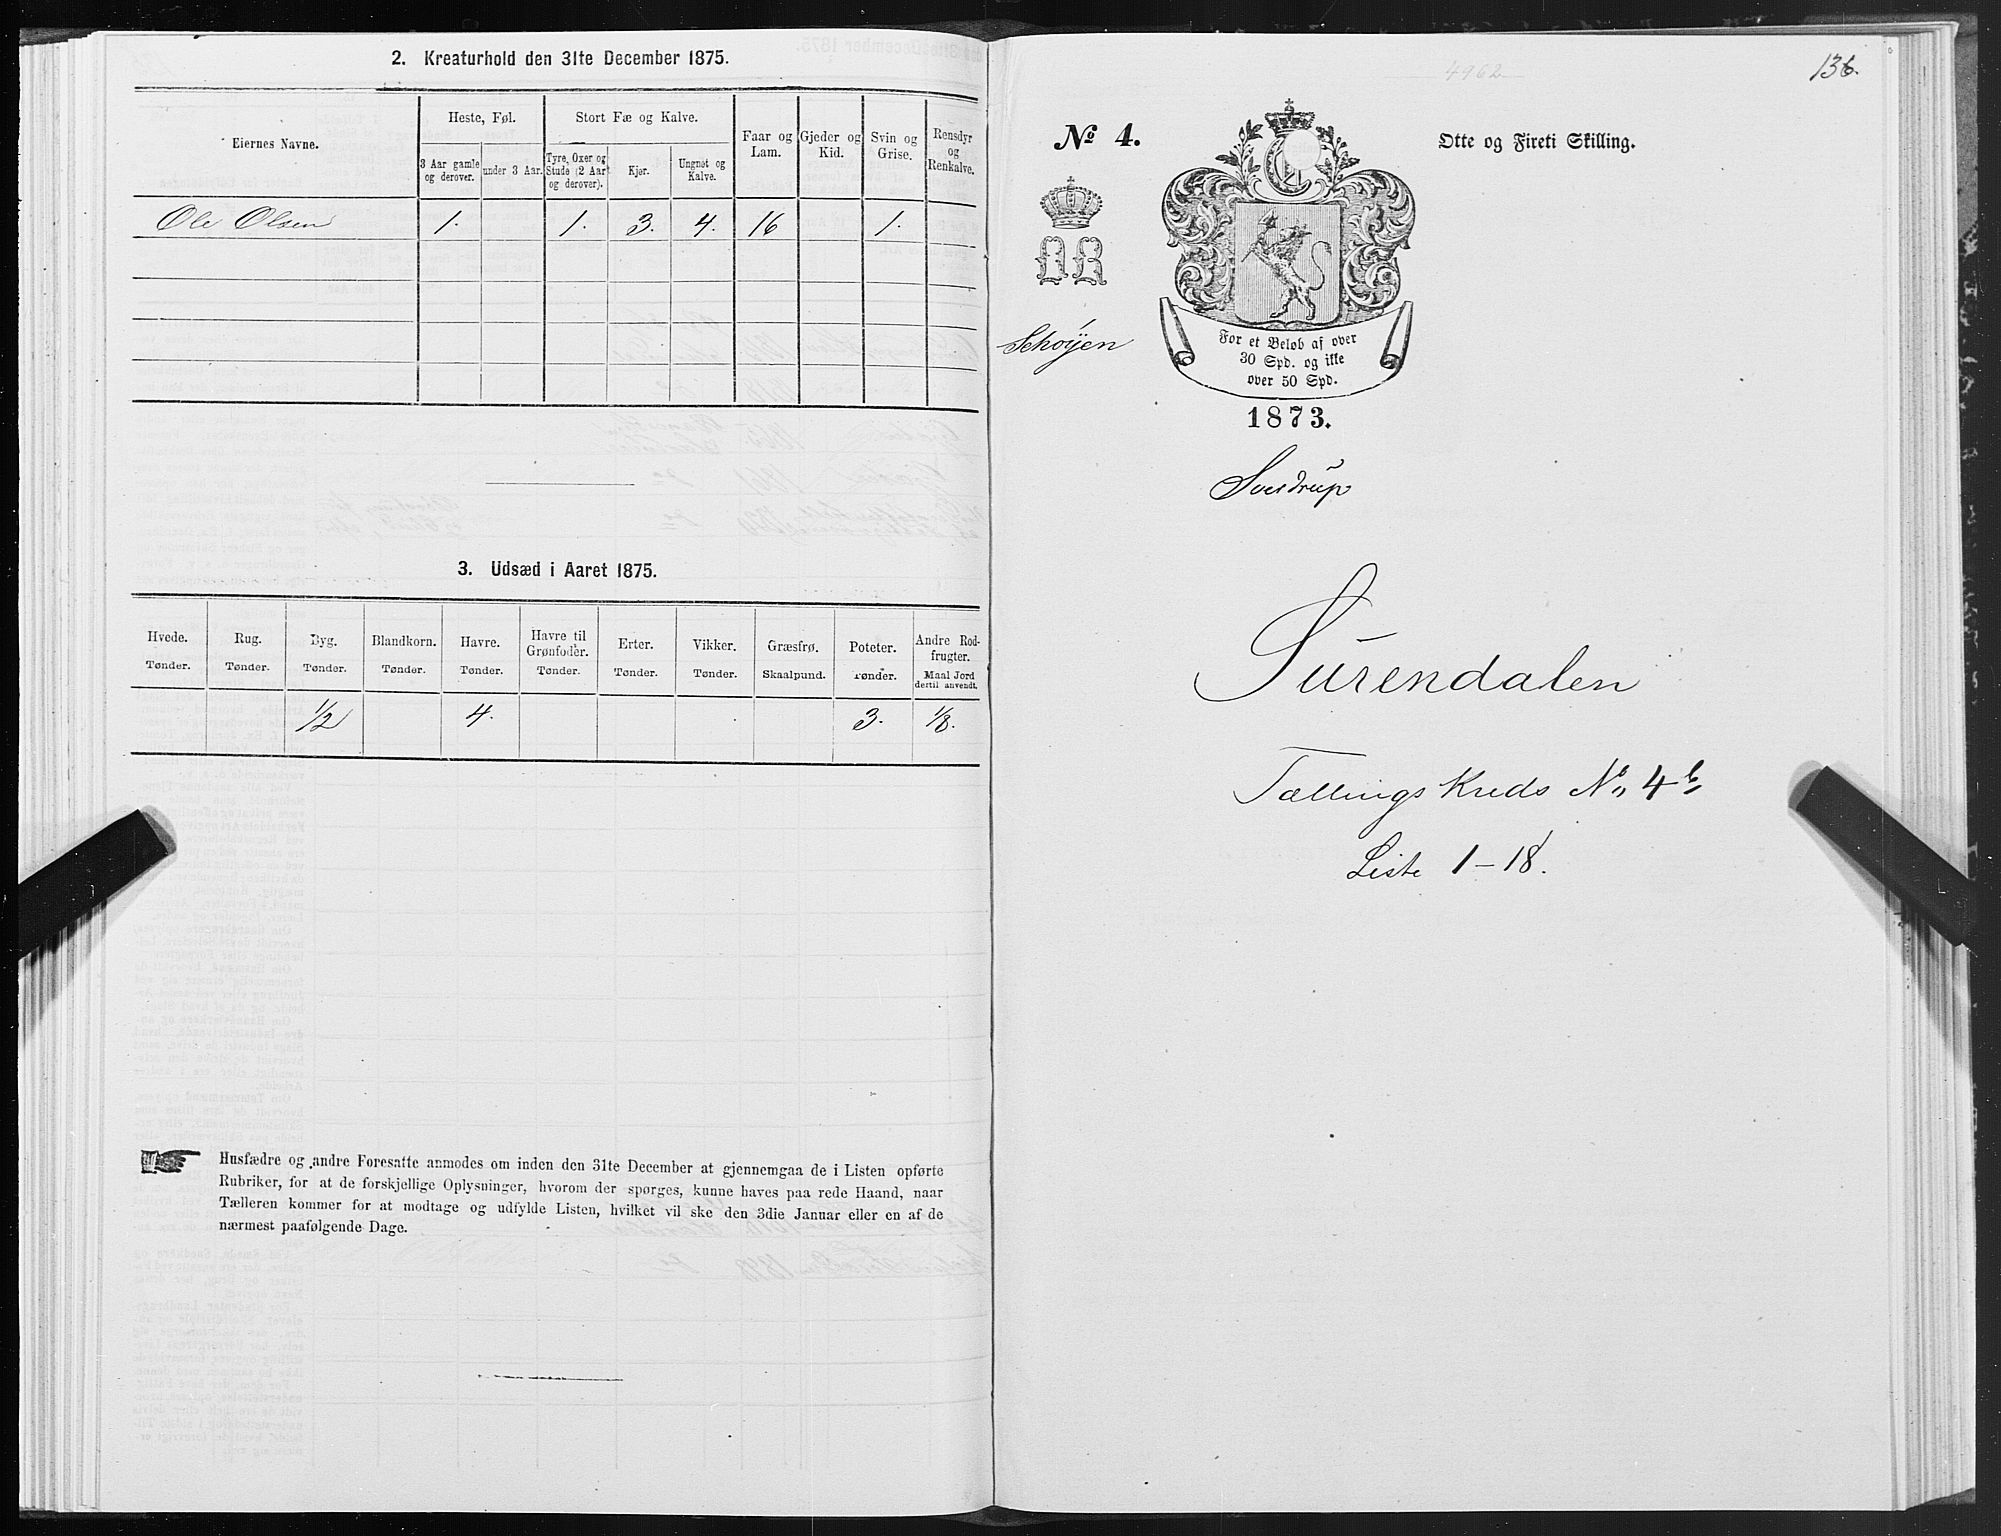 2. Kreaturhold den 31te December 1875.
Eiernes Navne.
Heste, Føl.
Stort Fæ og Kalve.
Faar og Lam.
Gjeder og Kid.
Svin og Grise.
Rensdyr og Renkalve.
3 Aar gamle og derover.
under 3 Aar.
Tyre, Oxer og Stude (2 Aar og derover).
Kjør.
Ungnøt og Kalve.
Ole Olsen 1. 1. 3. 4. 16 1.
3. Udsæd i Aaret 1875.
Hvede. Rug. Byg. Blandkorn. Havre. Havre til Grønfoder. Erter. Vikker. Græsfrø. Poteter. Andre Rodfrugter.
Tønder. Tønder. Tønder. Tønder. Tønder. Tønder. Tønder. Tønder. Skaalpund. Tønder. Maal Jord dertil anvendt.
1/2 4. 3. 1/8.
Husfædre og andre Foresatte anmodes om inden den 31te December at gjennemgaa de i Listen opførte
Rubriker, for at de forskjellige Oplysninger, hvorom der spørges, kunne haves paa rede Haand, naar
Tælleren kommer for at modtage og udfylde Listen, hvilket vil ske den 3die Januar eller en af de
nærmest paafølgende Dage.
4962
136.
No 4.
Otte og Fireti Skilling.
Schøyen
For et Beløb af over
30 Spd. og ikke
over 50 Spd.
1873.
Sverdrup
Surendalen
Tællingskreds No 4b
Liste 1-18.